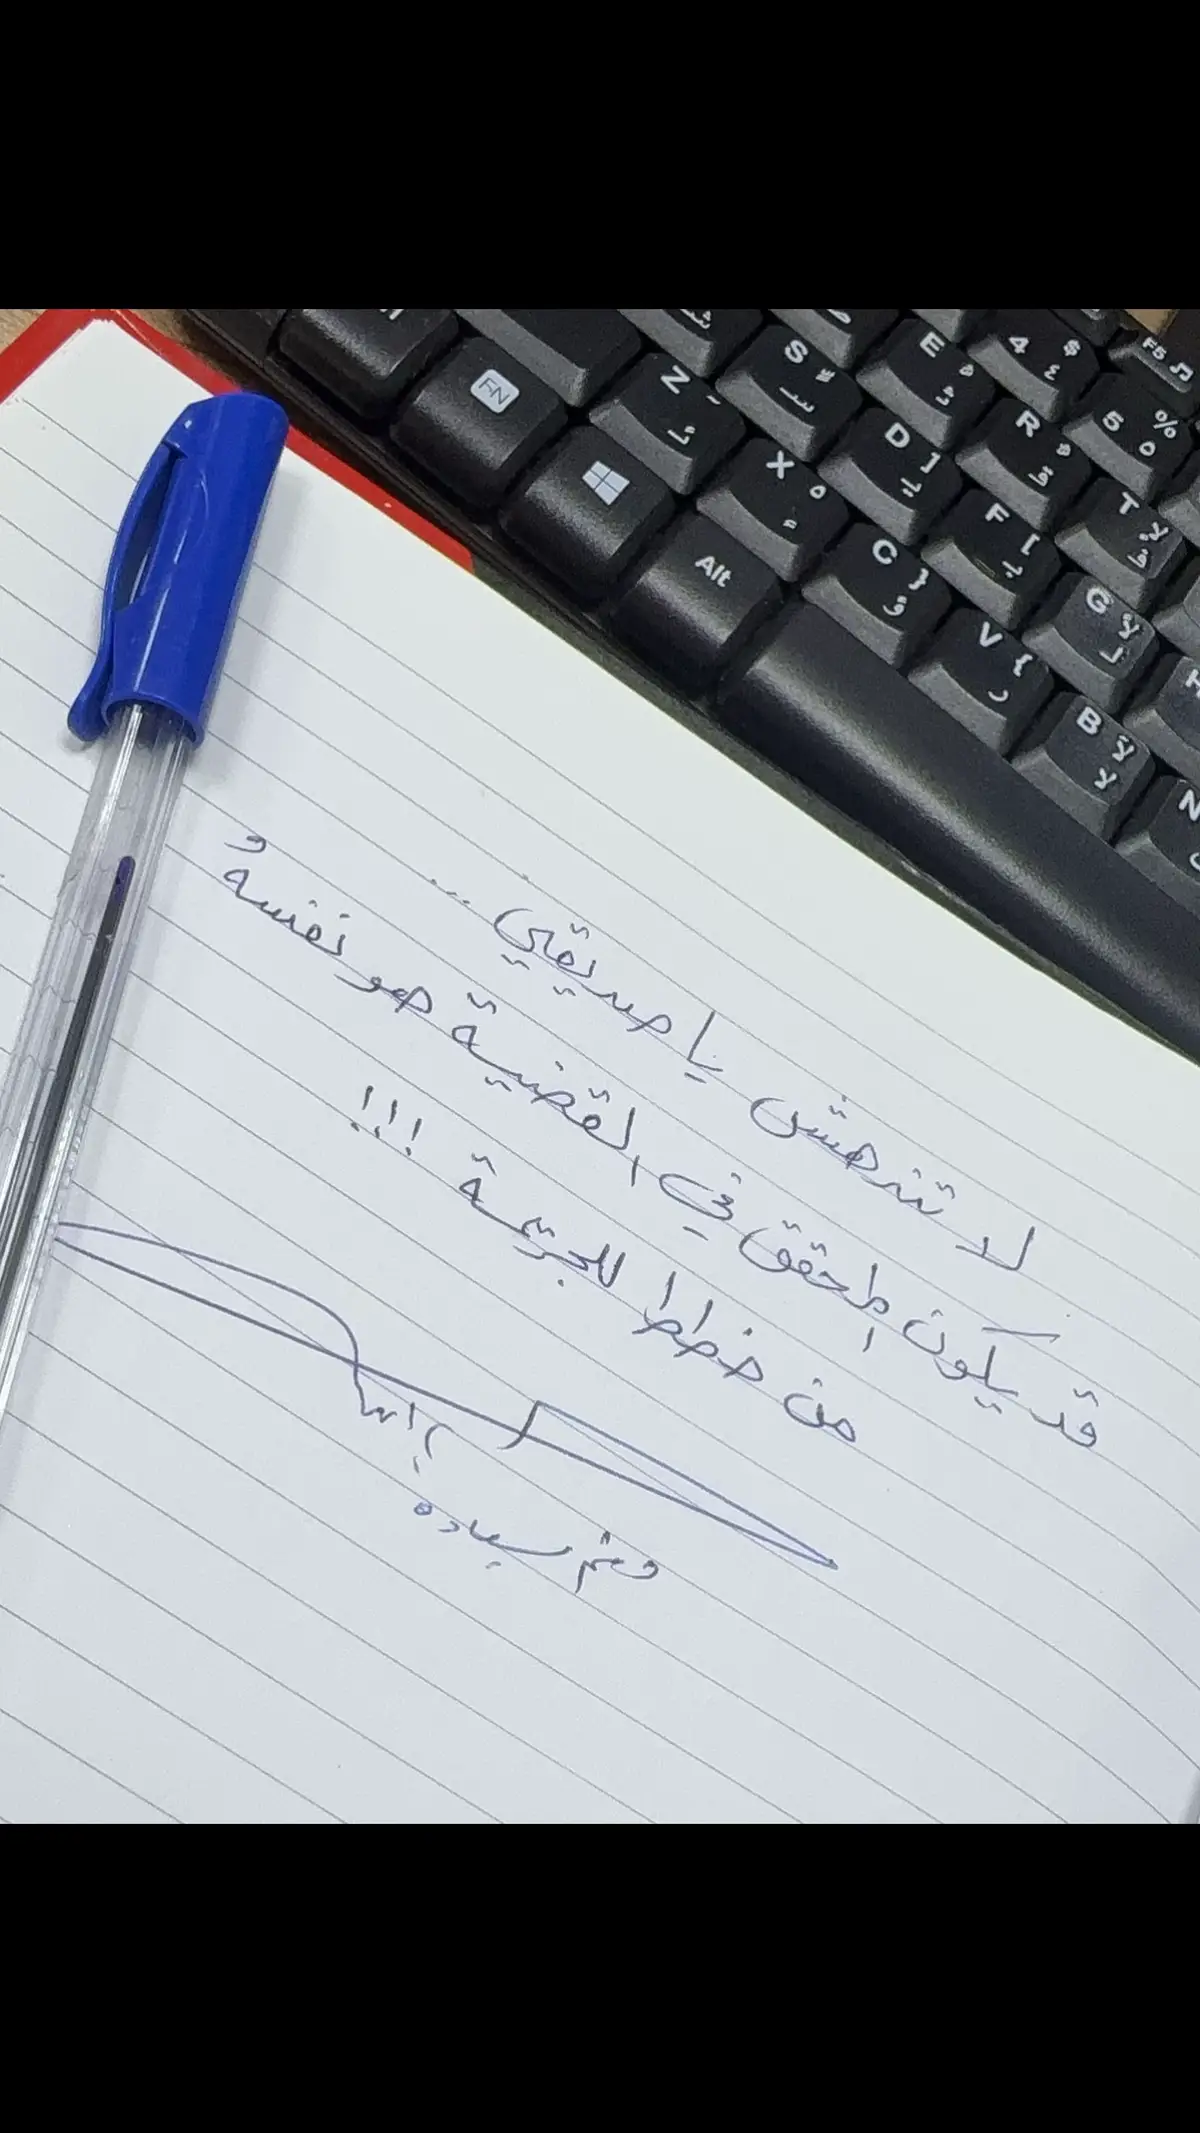 لا تندهش يا صديقي ...
قد يكون المحقق في القضية هو نفسهُ
من خطط للجريمة !!!
FN
Alt
Z
S
E
4 $
F5
X
D
R
5 %
C
F
T
V
G
B
H
N